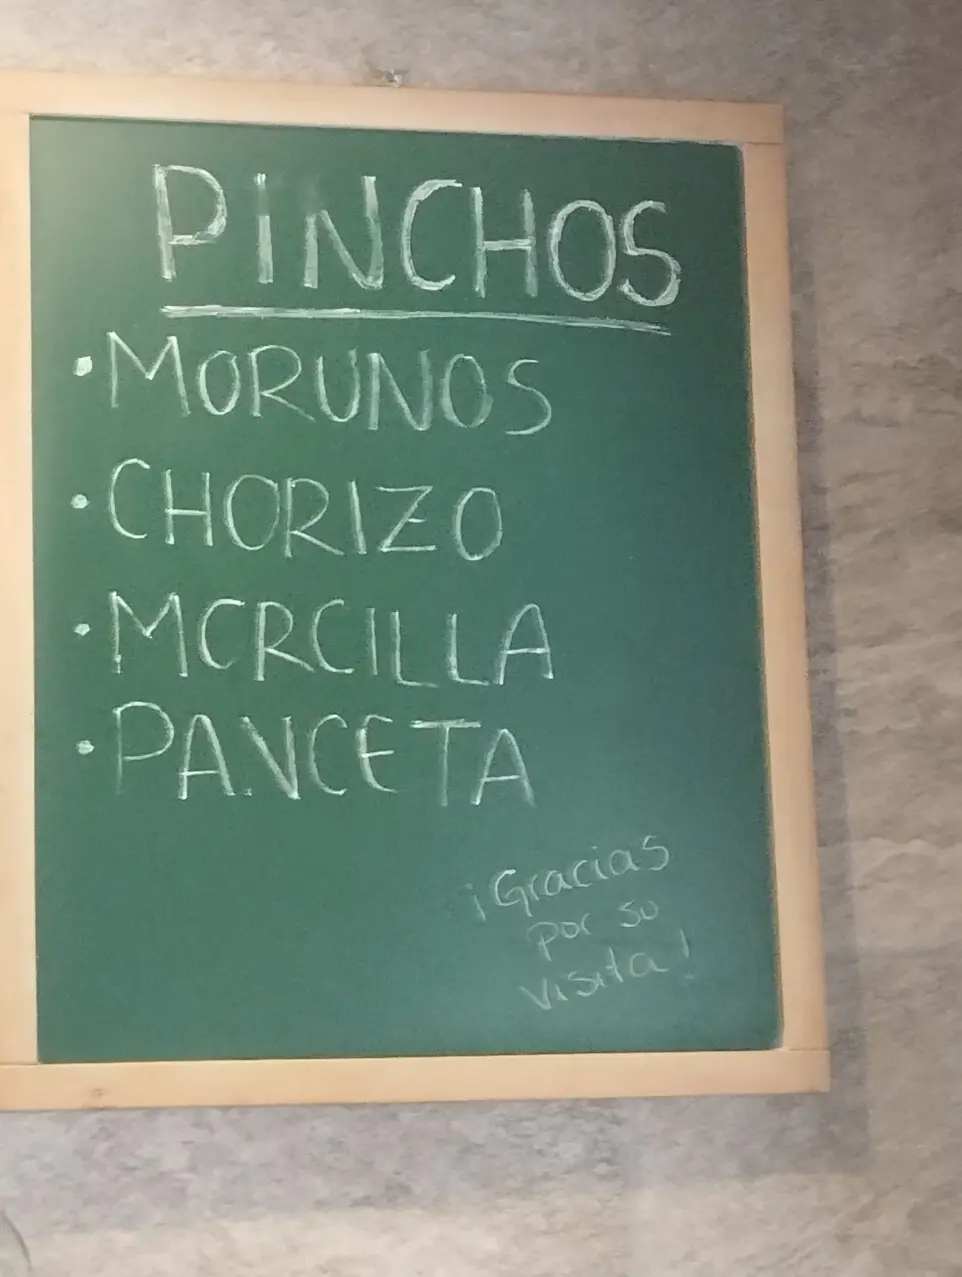 PINCHOS
·MORUNOS
·CHORIZO
·MORCILLA
·PANCETA
¡Gracias
por su
visita!